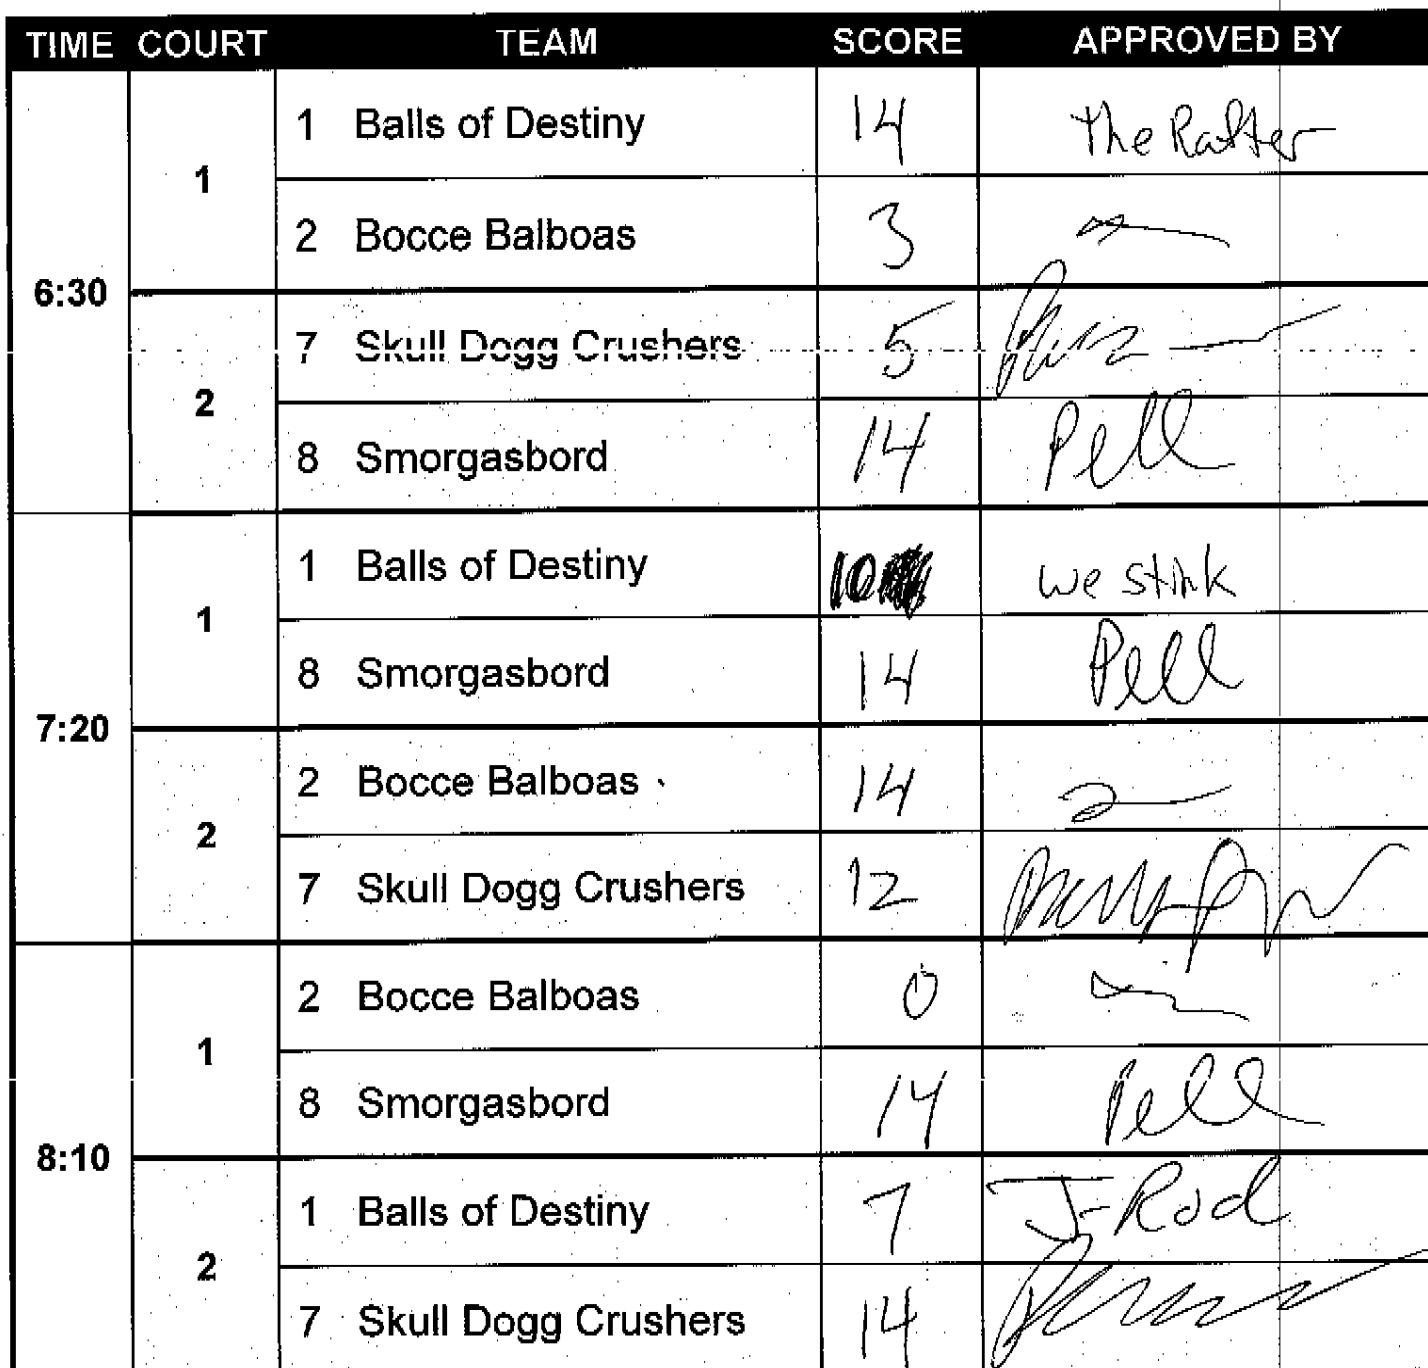 TIME COURT TEAM SCORE APPROVED BY
6:30
1
1 Balls of Destiny 14 The Rafter
2 Bocce Balboas 3
2
7 Skull Dogg Crushers 5
8 Smorgasbord 14 Pell
7:20
1
1 Balls of Destiny 10 we stink
8 Smorgasbord 14 Pell
2
2 Bocce Balboas 14
7 Skull Dogg Crushers 12
8:10
1
2 Bocce Balboas 0
8 Smorgasbord 14 Pell
2
1 Balls of Destiny 7 J-Rod
7 Skull Dogg Crushers 14